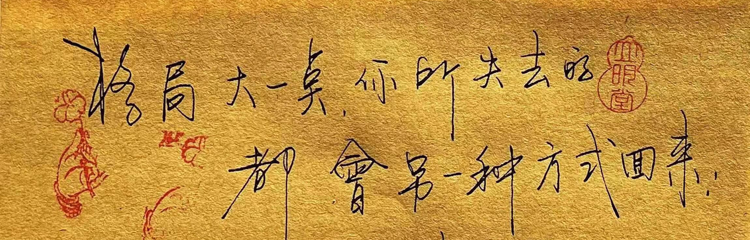 格局大一点,你所失去的
都會另一种方式回来.